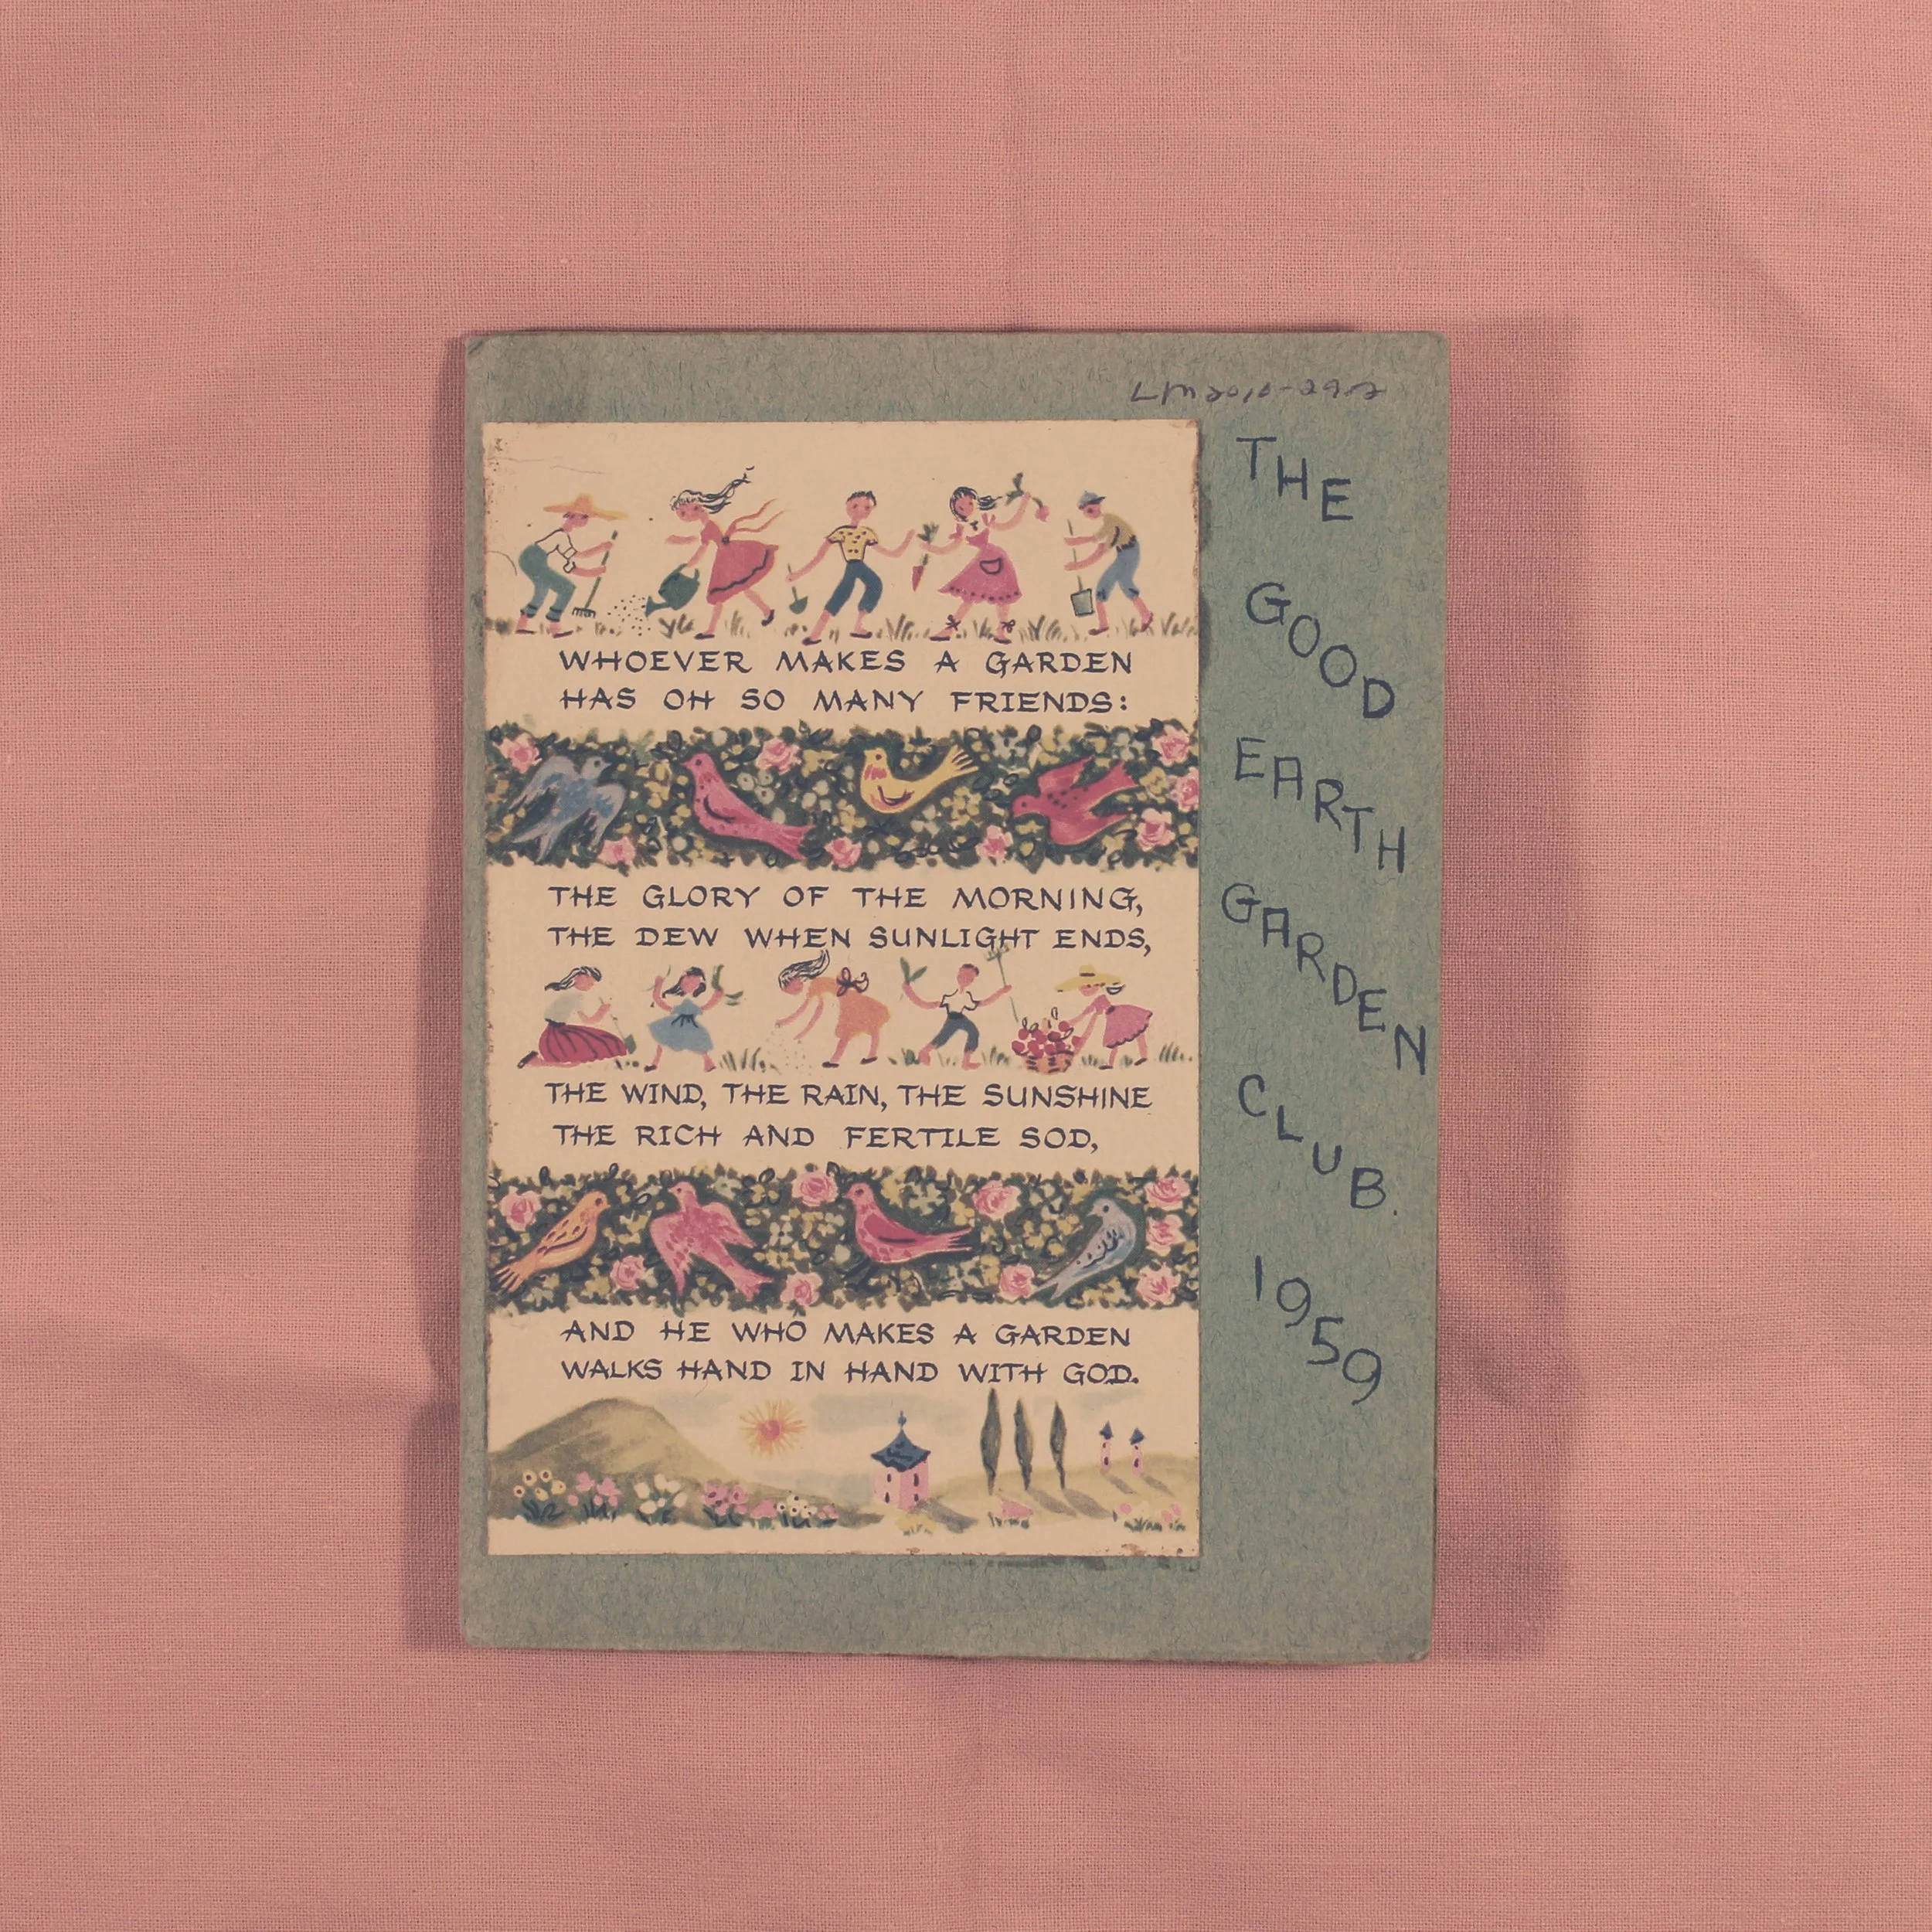 LM2010-29.2
WHOEVER MAKES A GARDEN
HAS OH SO MANY FRIENDS:
THE GLORY OF THE MORNING,
THE DEW WHEN SUNLIGHT ENDS,
THE WIND, THE RAIN, THE SUNSHINE
THE RICH AND FERTILE SOD,
AND HE WHO MAKES A GARDEN
WALKS HAND IN HAND WITH GOD.
THE
GOOD
EARTH
GARDEN
CLUB.
1959